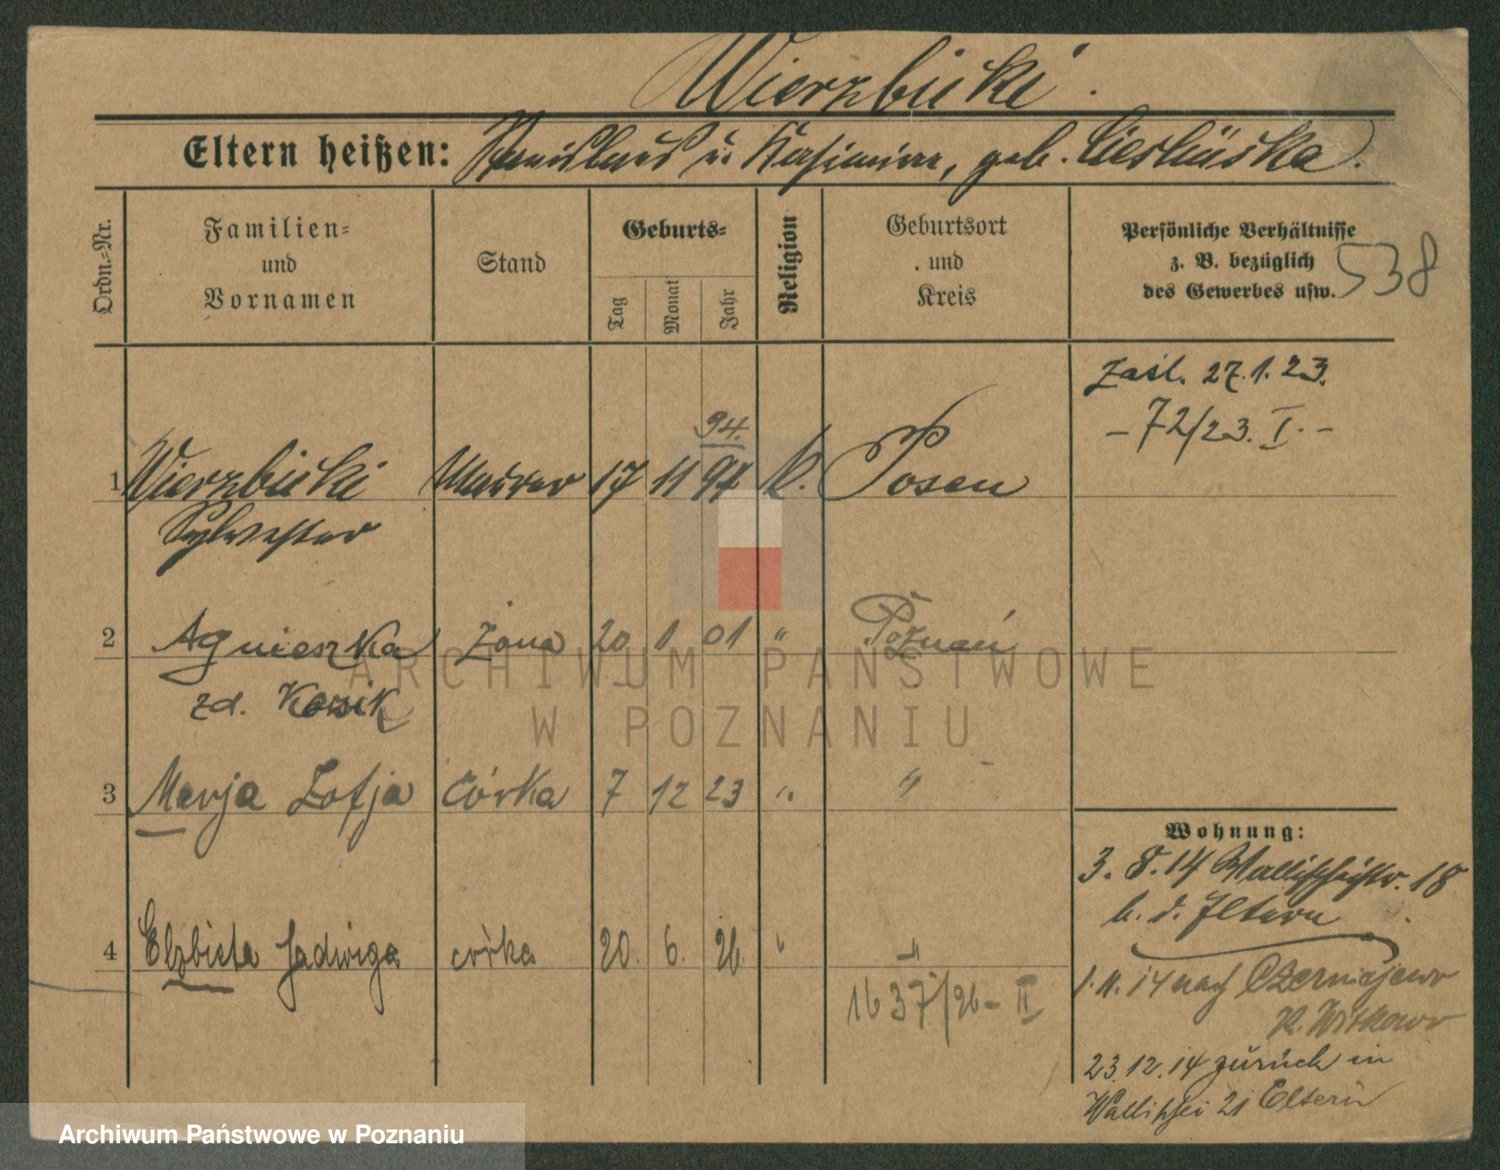 Wierzbicki.
Eltern heißen: Stanislaus u. Kasimira, geb. Cieslińska.
Ordn.-Nr.
Familien-
und
Vornamen
Stand
Geburts-
Tag
Monat
Jahr
Religion
Geburtsort
und
Kreis
Persönliche Verhältnisse
z. B. bezüglich
des Gewerbes usw.
538
zaśl. 27.1.23.
- 72/23. I. -
94.
1 Wierzbicki Maurer 17 11 97 k. Posen
Sylvester
2 Agnieszka żona 20 1 01 " Poznań
zd. Kozik
3 Marja Zofja córka 7 12 23 " "
4 Elżbieta Jadwiga córka 20. 6. 26. " "
1637/26 - II
Wohnung:
3. 8. 14 Wallischeistr. 18
b. d. Eltern
1. 11. 14 nach Czerniejewo
K. Witkowo
23.12.14 zurück in
Wallischei 21 Eltern
ARCHIWUM PAŃSTWOWE
W POZNANIU
Archiwum Państwowe w Poznaniu